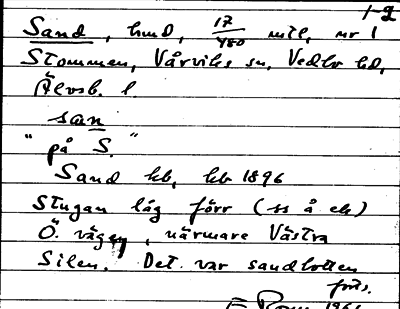 1-2
Sand, hmd, 17/480 mtl, nr 1
Stommen, Vårviks sn, Vedbo hd,
Älvsb. l
san
"på S."
Sand kb, hb 1896
Stugan låg förr (ss å ek)
Ö. vägen, närmare Västra
Silen. Det var sandbotten
forts.